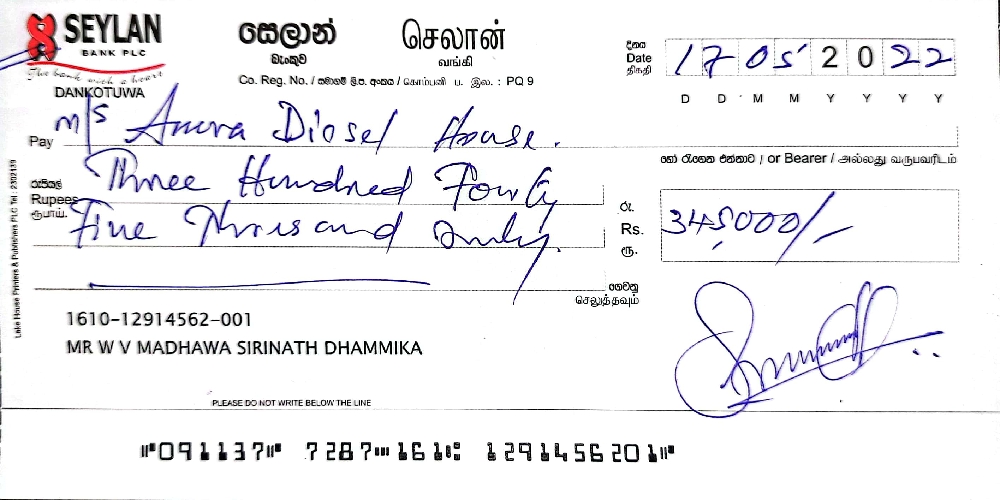 SEYLAN
BANK PLC
The bank with a heart
DANKOTUWA
සෙලාන්
බැංකුව
செலான்
வங்கி
Co. Reg. No. / සමාගම් ලි.ප. අංකය / கொம்பனி ப. இல. : PQ 9
දිනය
Date
திகதி
17 05 2022
D D M M Y Y Y Y
Pay M/S Anura Diosel House.
හෝ රැගෙන එන්නාට / or Bearer / அல்லது வருபவரிடம்
රුපියල්
Rupees
ரூபாய்.
Three Hundred Fourty
Five Thousand Only.
රු.
Rs.
ரூ.
345,000/-
ගෙවනු
செலுத்தவும்
1610-12914562-001
MR W V MADHAWA SIRINATH DHAMMIKA
PLEASE DO NOT WRITE BELOW THE LINE
Lake House Printers & Publishers PLC Tel : 2302139
⑈091137⑈ 7287⑉161⑆ 1291456201⑈